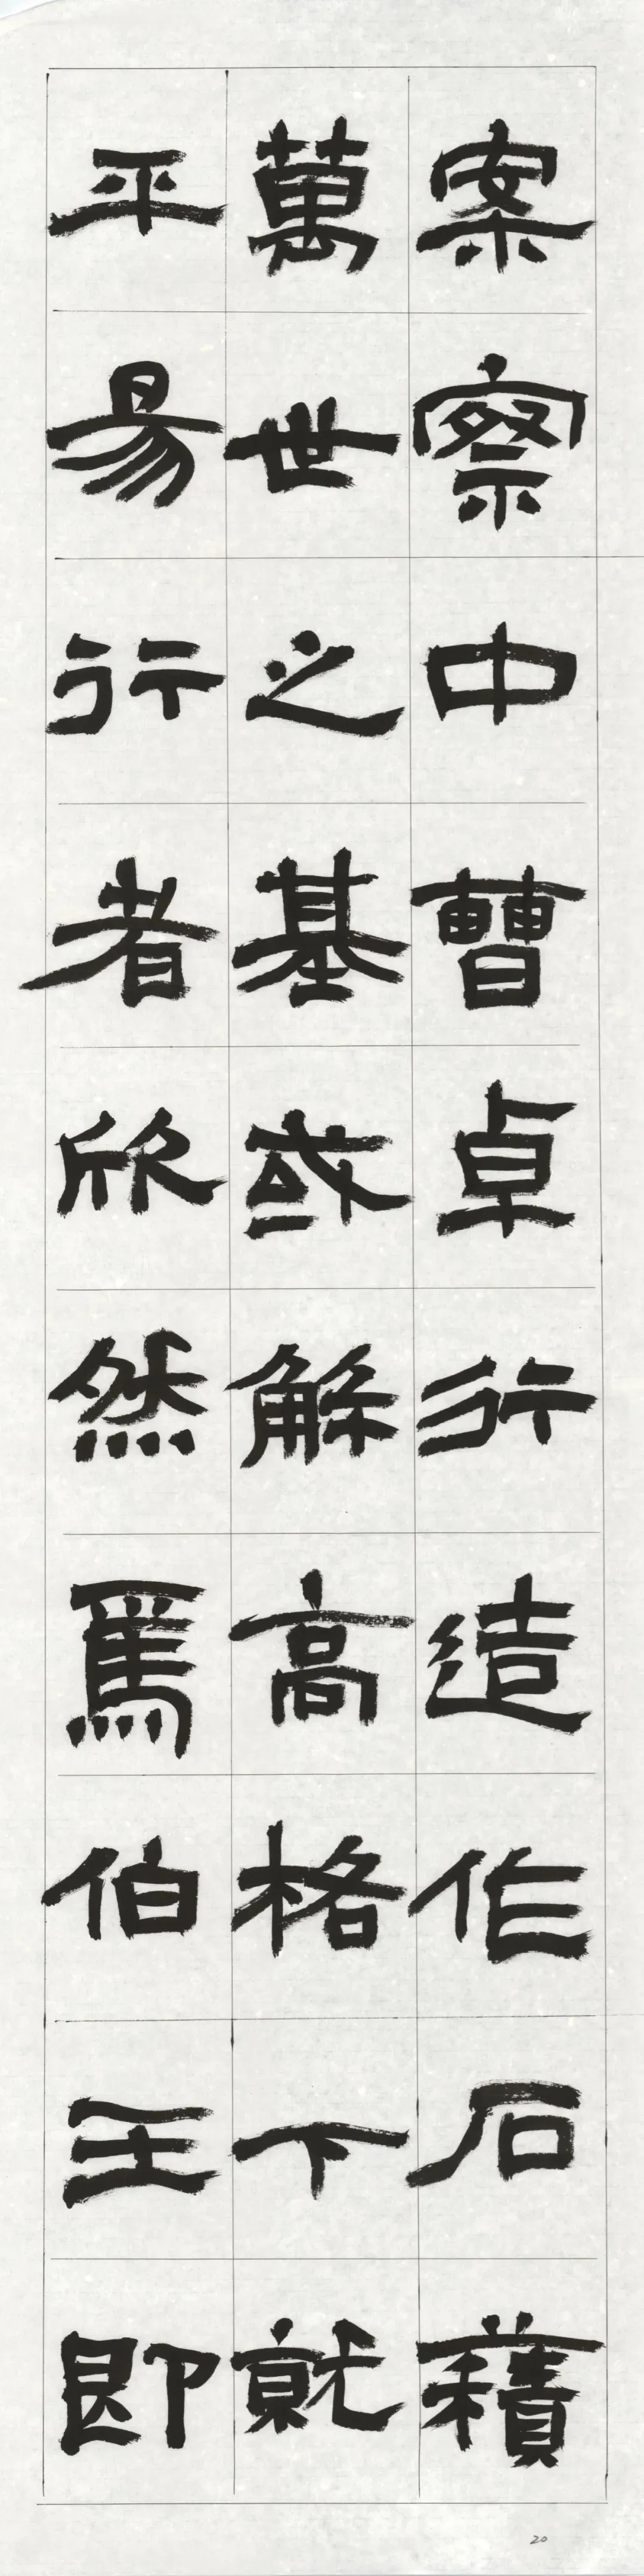 案察中曹卓行造作石𧂐
萬世之基或解高格下就
平昜行者欣然焉伯王即
20